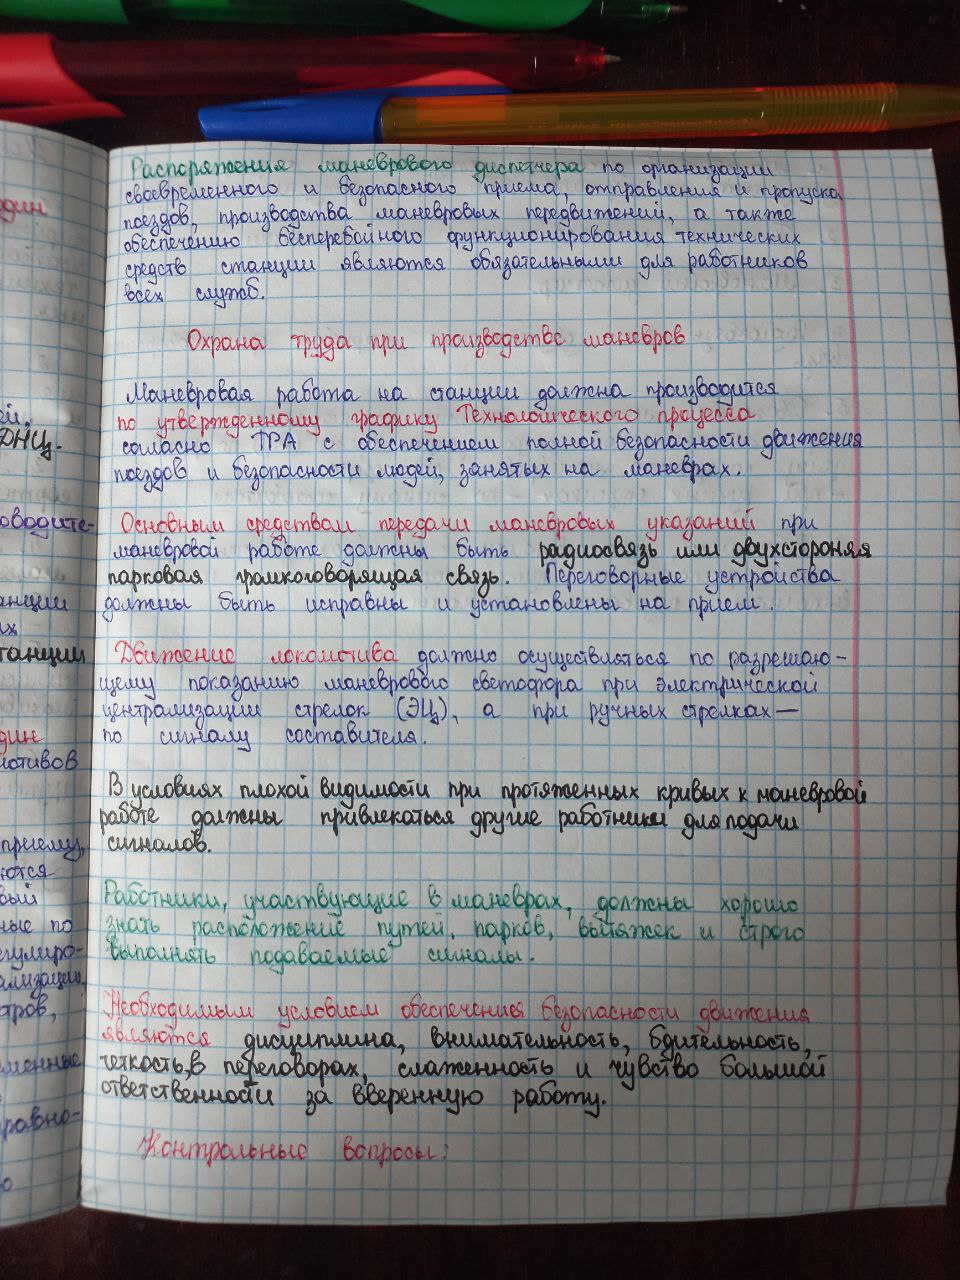 Распоряжения маневрового диспетчера по организации
своевременного и безопасного приема, отправления и пропуска
поездов, производства маневровых передвижений, а также
обеспечению бесперебойного функционирования технических
средств станции являются обязательными для работников
всех служб.
Охрана труда при производстве маневров
Маневровая работа на станции должна производится
по утвержденному графику Технологического процесса
согласно ТРА с обеспечением полной безопасности движения
поездов и безопасности людей, занятых на маневрах.
Основным средством передачи маневровых указаний при
маневровой работе должны быть радиосвязь или двухстороняя
парковая громкоговорящая связь. Переговорные устройства
должны быть исправны и установлены на прием.
Движение локомотива должно осуществляться по разрешаю-
щему показанию маневрового светофора при электрической
централизации стрелок (ЭЦ), а при ручных стрелках —
по сигналу составителя.
В условиях плохой видимости при протяженных кривых к маневровой
работе должны привлекаться другие работники для подачи
сигналов.
Работники, участвующие в маневрах, должны хорошо
знать расположение путей, парков, вытяжек и строго
выполнять подаваемые сигналы.
Необходимым условием обеспечения безопасности движения
являются дисциплина, внимательность, бдительность,
четкость, в переговорах, слаженность и чувство большой
ответственности за вверенную работу.
Контрольные вопросы:
один
ей,
ДНЦ.
оводите-
анции
их
танции
один
мотивов
приему,
ются
вый
ные по
егулиро-
ализации,
тров,
менные
равно-